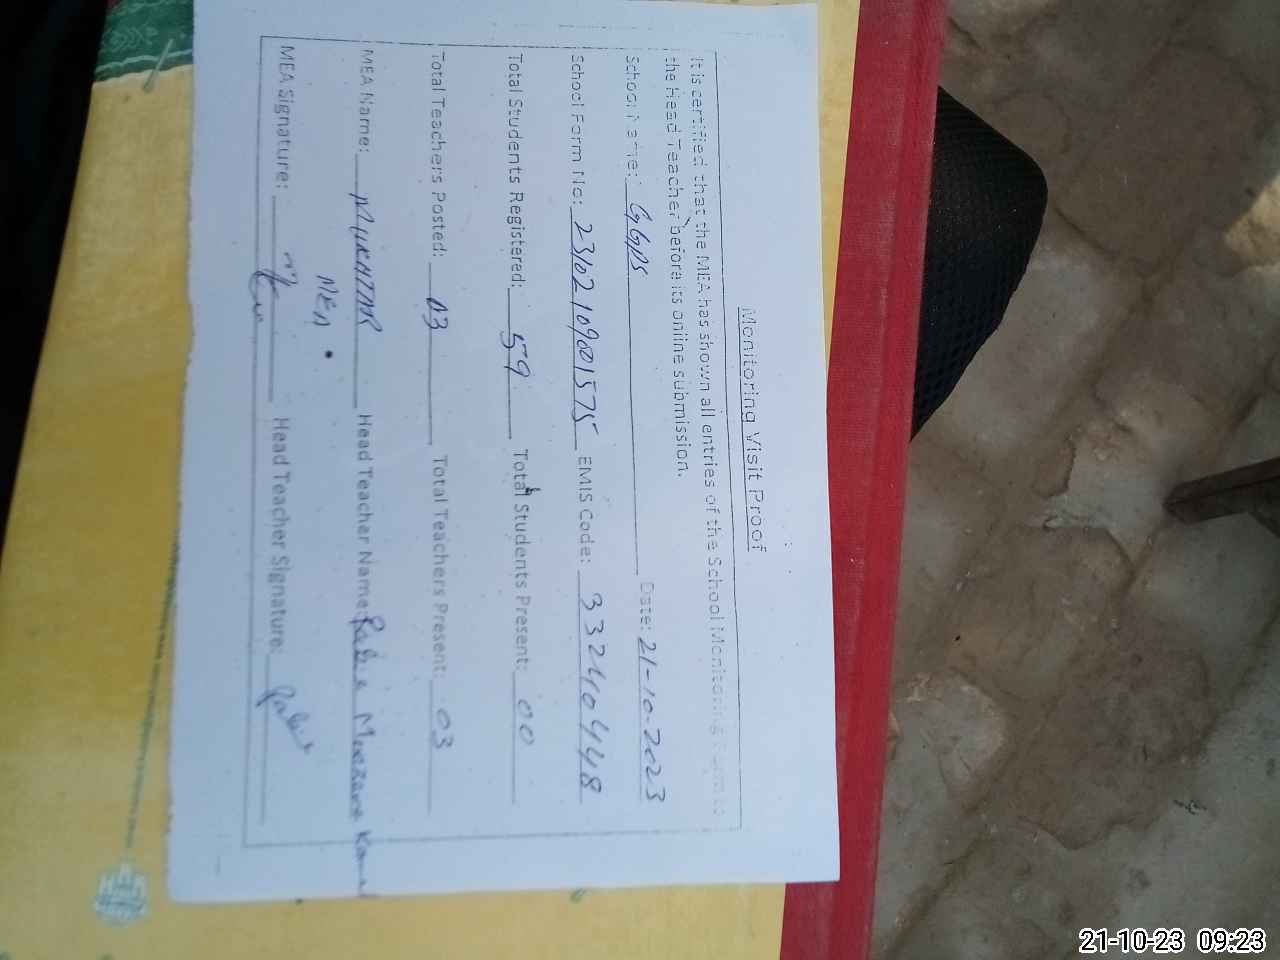 Monitoring Visit Proof
It is certified that the MEA has shown all entries of the School Monitoring Form to
the Head Teacher before its online submission.
School Name: GGPS Date: 21-10-2023
School Form No: 23102109001575 EMIS Code: 33240448
Total Students Registered: 59 Total Students Present: 00
Total Teachers Posted: 03 Total Teachers Present: 03
MEA Name: MUKHTAR Head Teacher Name: Rabia
MEA
MEA Signature: Head Teacher Signature: Rabia
21-10-23 09:23